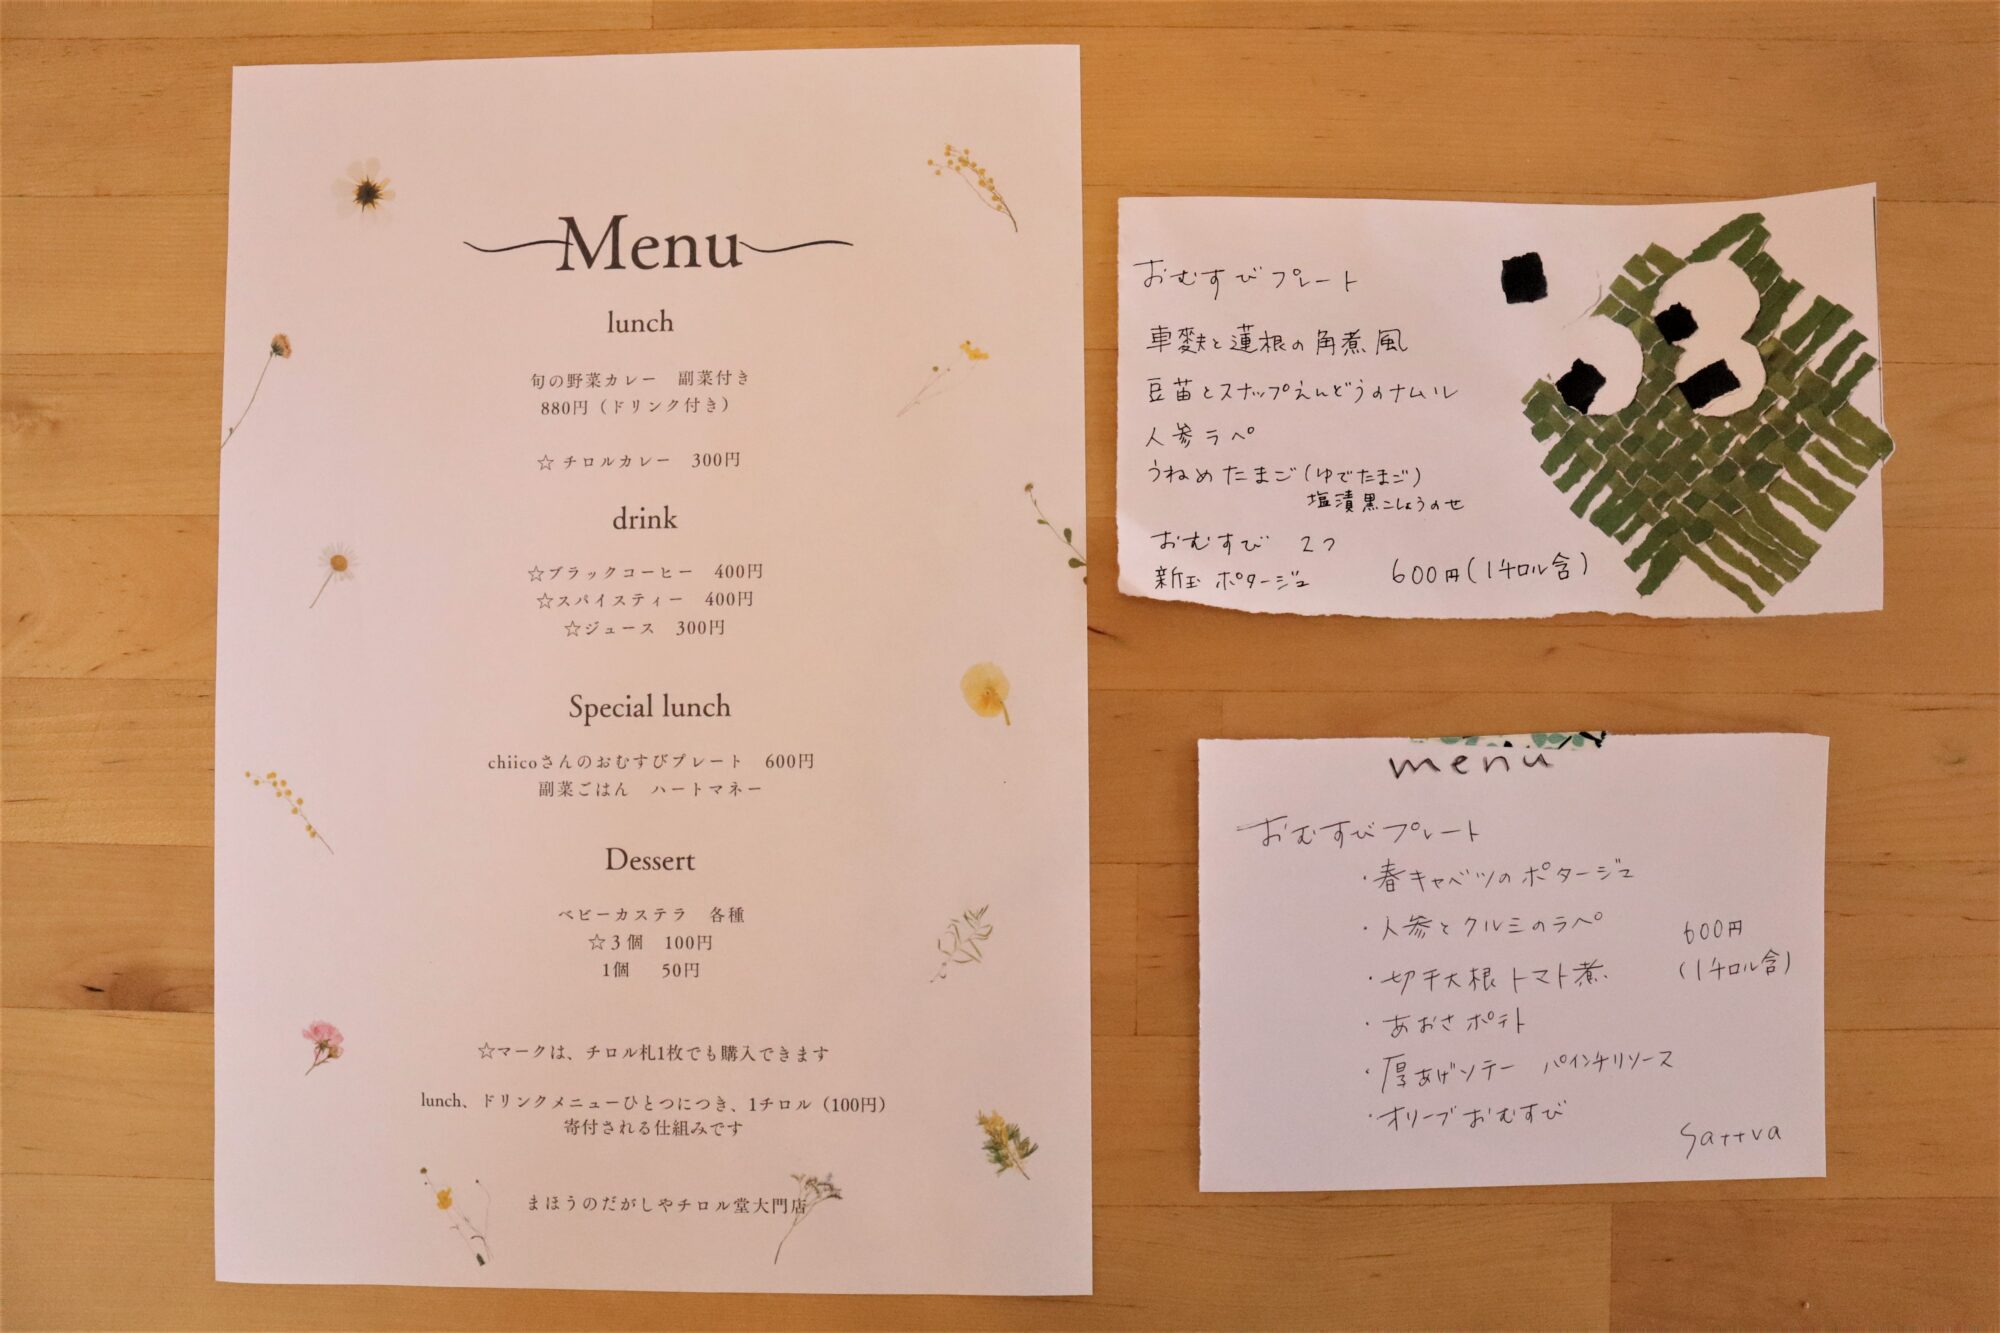 Menu
lunch
旬の野菜カレー　副菜付き
880円（ドリンク付き）
☆ チロルカレー　300円
drink
☆ブラックコーヒー　400円
☆スパイスティー　400円
☆ジュース　300円
Special lunch
chiicoさんのおむすびプレート　600円
副菜ごはん　ハートマネー
Dessert
ベビーカステラ　各種
☆３個　100円
1個　50円
☆マークは、チロル札1枚でも購入できます
lunch、ドリンクメニューひとつにつき、1チロル（100円）
寄付される仕組みです
まほうのだがしやチロル堂大門店
おむすびプレート
車麩と蓮根の角煮風
豆苗とスナップえんどうのナムル
人参ラペ
うねめたまご(ゆでたまご)
塩漬黒こしょうのせ
おむすび 2つ
新玉 ポタージュ 600円(1チロル含)
menu
おむすびプレート
・春キャベツのポタージュ
・人参とクルミのラペ
・切干大根トマト煮
・あおさポテト
・厚あげソテー パインチリソース
・オリーブおむすび
600円
(1チロル含)
Sattva